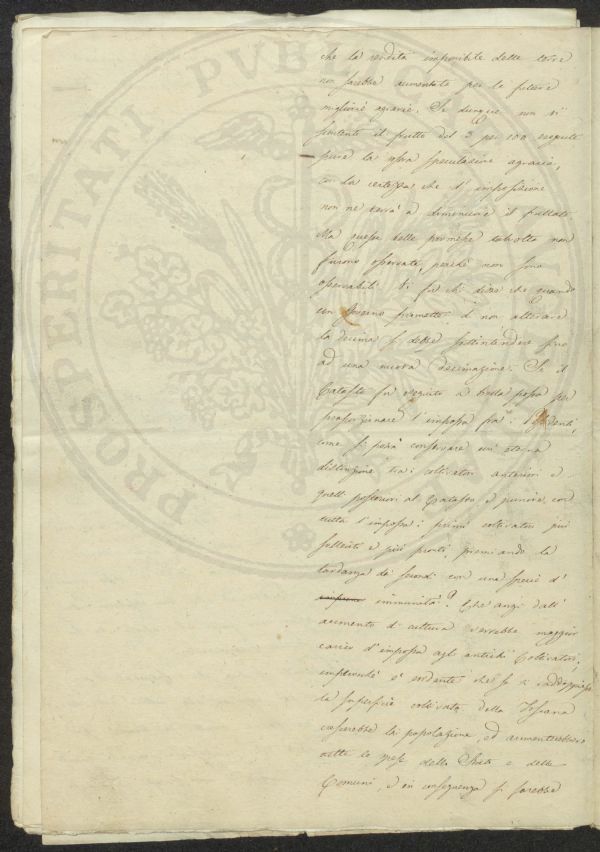 che la rendita imponibile delle terre
non sarebbe aumentata per le future
migliorie agrarie. Se dunque non vi
contenta il frutto del 3 per 100 eseguite
pure la vostra speculazione agraria,
con la certezza che l'imposizione
non ne verrà a diminuire il fruttato.
Ma queste belle promesse talvolta non
furono osservate, perché non sono
osservabili. Vi fu chi disse che quando
un Governo promette di non alterare
la decima si debba sottintendere fino
ad una nuova decimazione. Se il
Catasto fu eseguito a bella posta per
proporzionare l'imposta fra i Possidenti,
come si potrà conservare un'eterna
distinzione tra i coltivatori anteriori e
quelli posteriori al Catasto, e punire con
tutta l'imposta i primi coltivatori più
solleciti e più pronti, premiando la
tardanza dei secondi con una specie d'
immunità? Che anzi dall'
aumento di cultura verrebbe maggior
carico d'imposta agli antichi Coltivatori;
imperocché è evidente che se si raddoppiasse
la superficie coltivata della Toscana
crescerebbe la popolazione, ed aumenterebbero
le spese dello Stato e delle
Comuni, e in conseguenza si farebbe
PROSPERITATI PVBLICAE